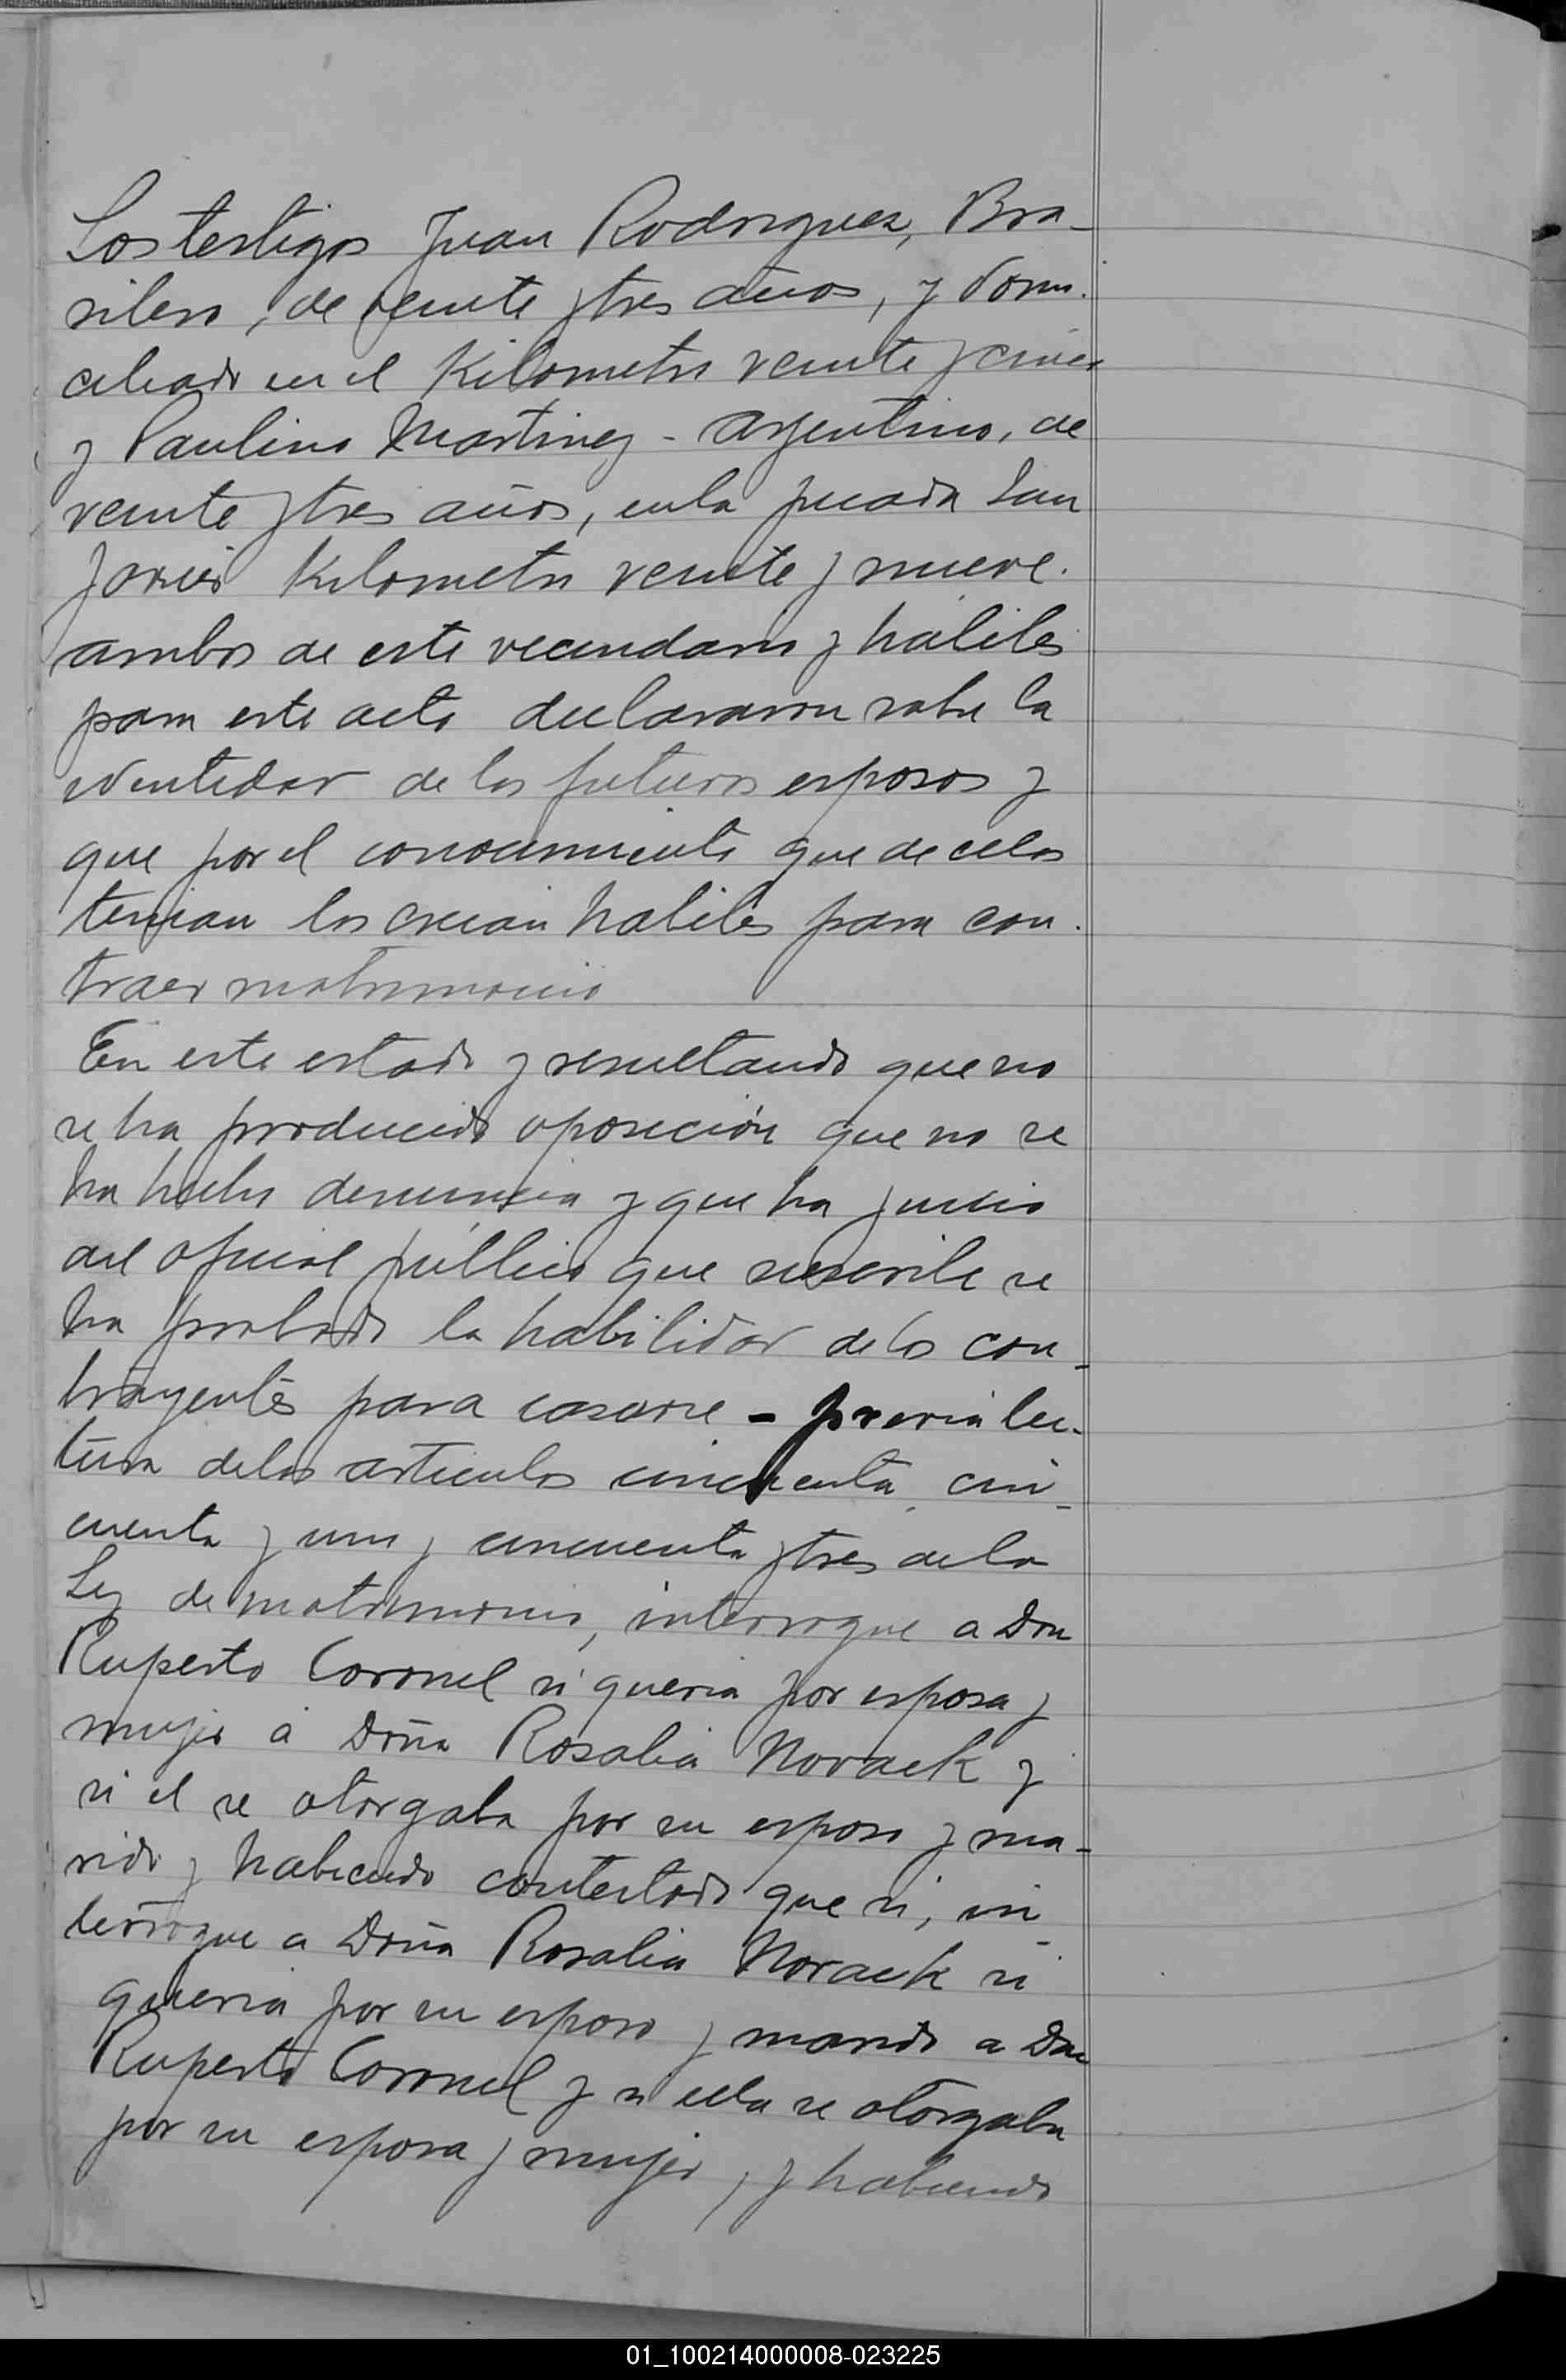 Los testigos Juan Rodriguez, Bra-
silero, de veinte y tres años, y domi-
ciliado en el Kilometro veinte y cinco
y Paulino Martinez - argentino, de
veinte y tres años, en la picada San
Javier Kilometro veinte y nueve.
ambos de este vecindario y habiles
para este acto declararon sobre la
identidad de los futuros esposos y
que por el conocimiento que de ellos
tenian los creian habiles para con-
traer matrimonio
En este estado y resultando que no
se ha producido oposición que no se
ha hecho denuncia y que ha juicio
del oficial público que suscribe se
ha probado la habilidad de los con-
trayentes para casarse - previa lec-
tura de los articulos cincuenta, cin-
cuenta y uno y cincuenta y tres de la
Ley de matrimonio, interrogue a Don
Ruperto Coronel si queria por esposa y
mujer a Doña Rosalia Novack y
si el se otorgaba por su esposo y ma-
rido y habiendo contestado que si, in-
terrogue a Doña Rosalia Novack si
queria por su esposo y marido a Don
Ruperto Coronel y si ella se otorgaba
por su esposa y mujer, y habiendo
01_100214000008-023225